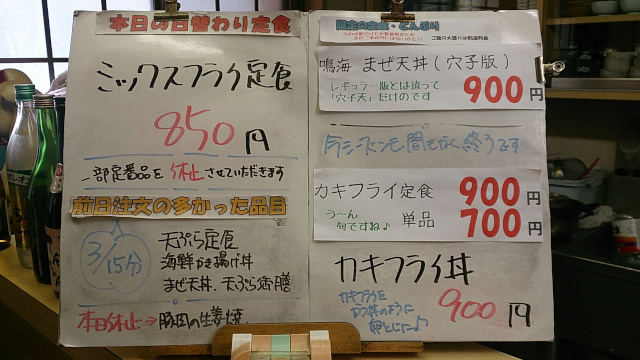 本日の日替わり定食
ミックスフライ定食
850円
一部定番品を休止させていただきます
前日注文の多かった品目
3/15分
天ぷら定食
海鮮かき揚げ丼
まぜ天丼、天ぷら御膳
本日休止→豚肉の生姜焼
限定の定食・どんぶり
ご飯の大盛りは別途料金
鳴海 まぜ天丼(穴子版)
レギュラー版とは違って
「穴子天」だけのです
900円
今シーズンも間もなく終うです
カキフライ定食 900円
うーん
旬ですね♪
単品 700円
カキフライ丼
カキフライを
カツ丼のように
卵とじに♪
900円